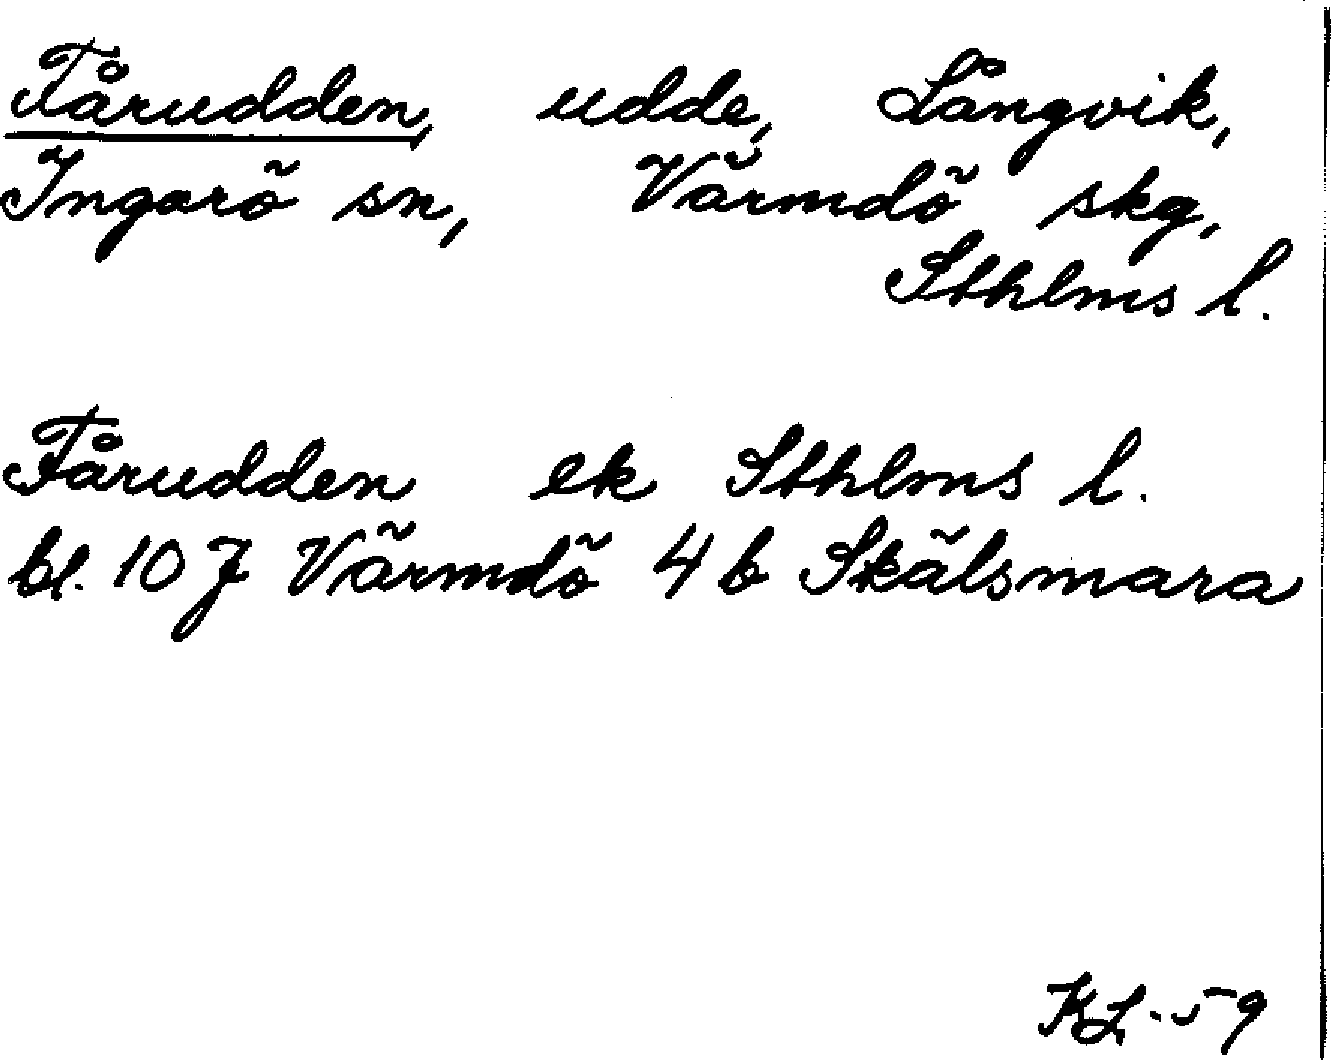 Fårudden, udde, Långvik,
Ingarö sn, Värmdö skg,
Sthlms l.
Fårudden ek Sthlms l.
bl. 10 J Värmdö 4 b Skälsmara
KL.-59